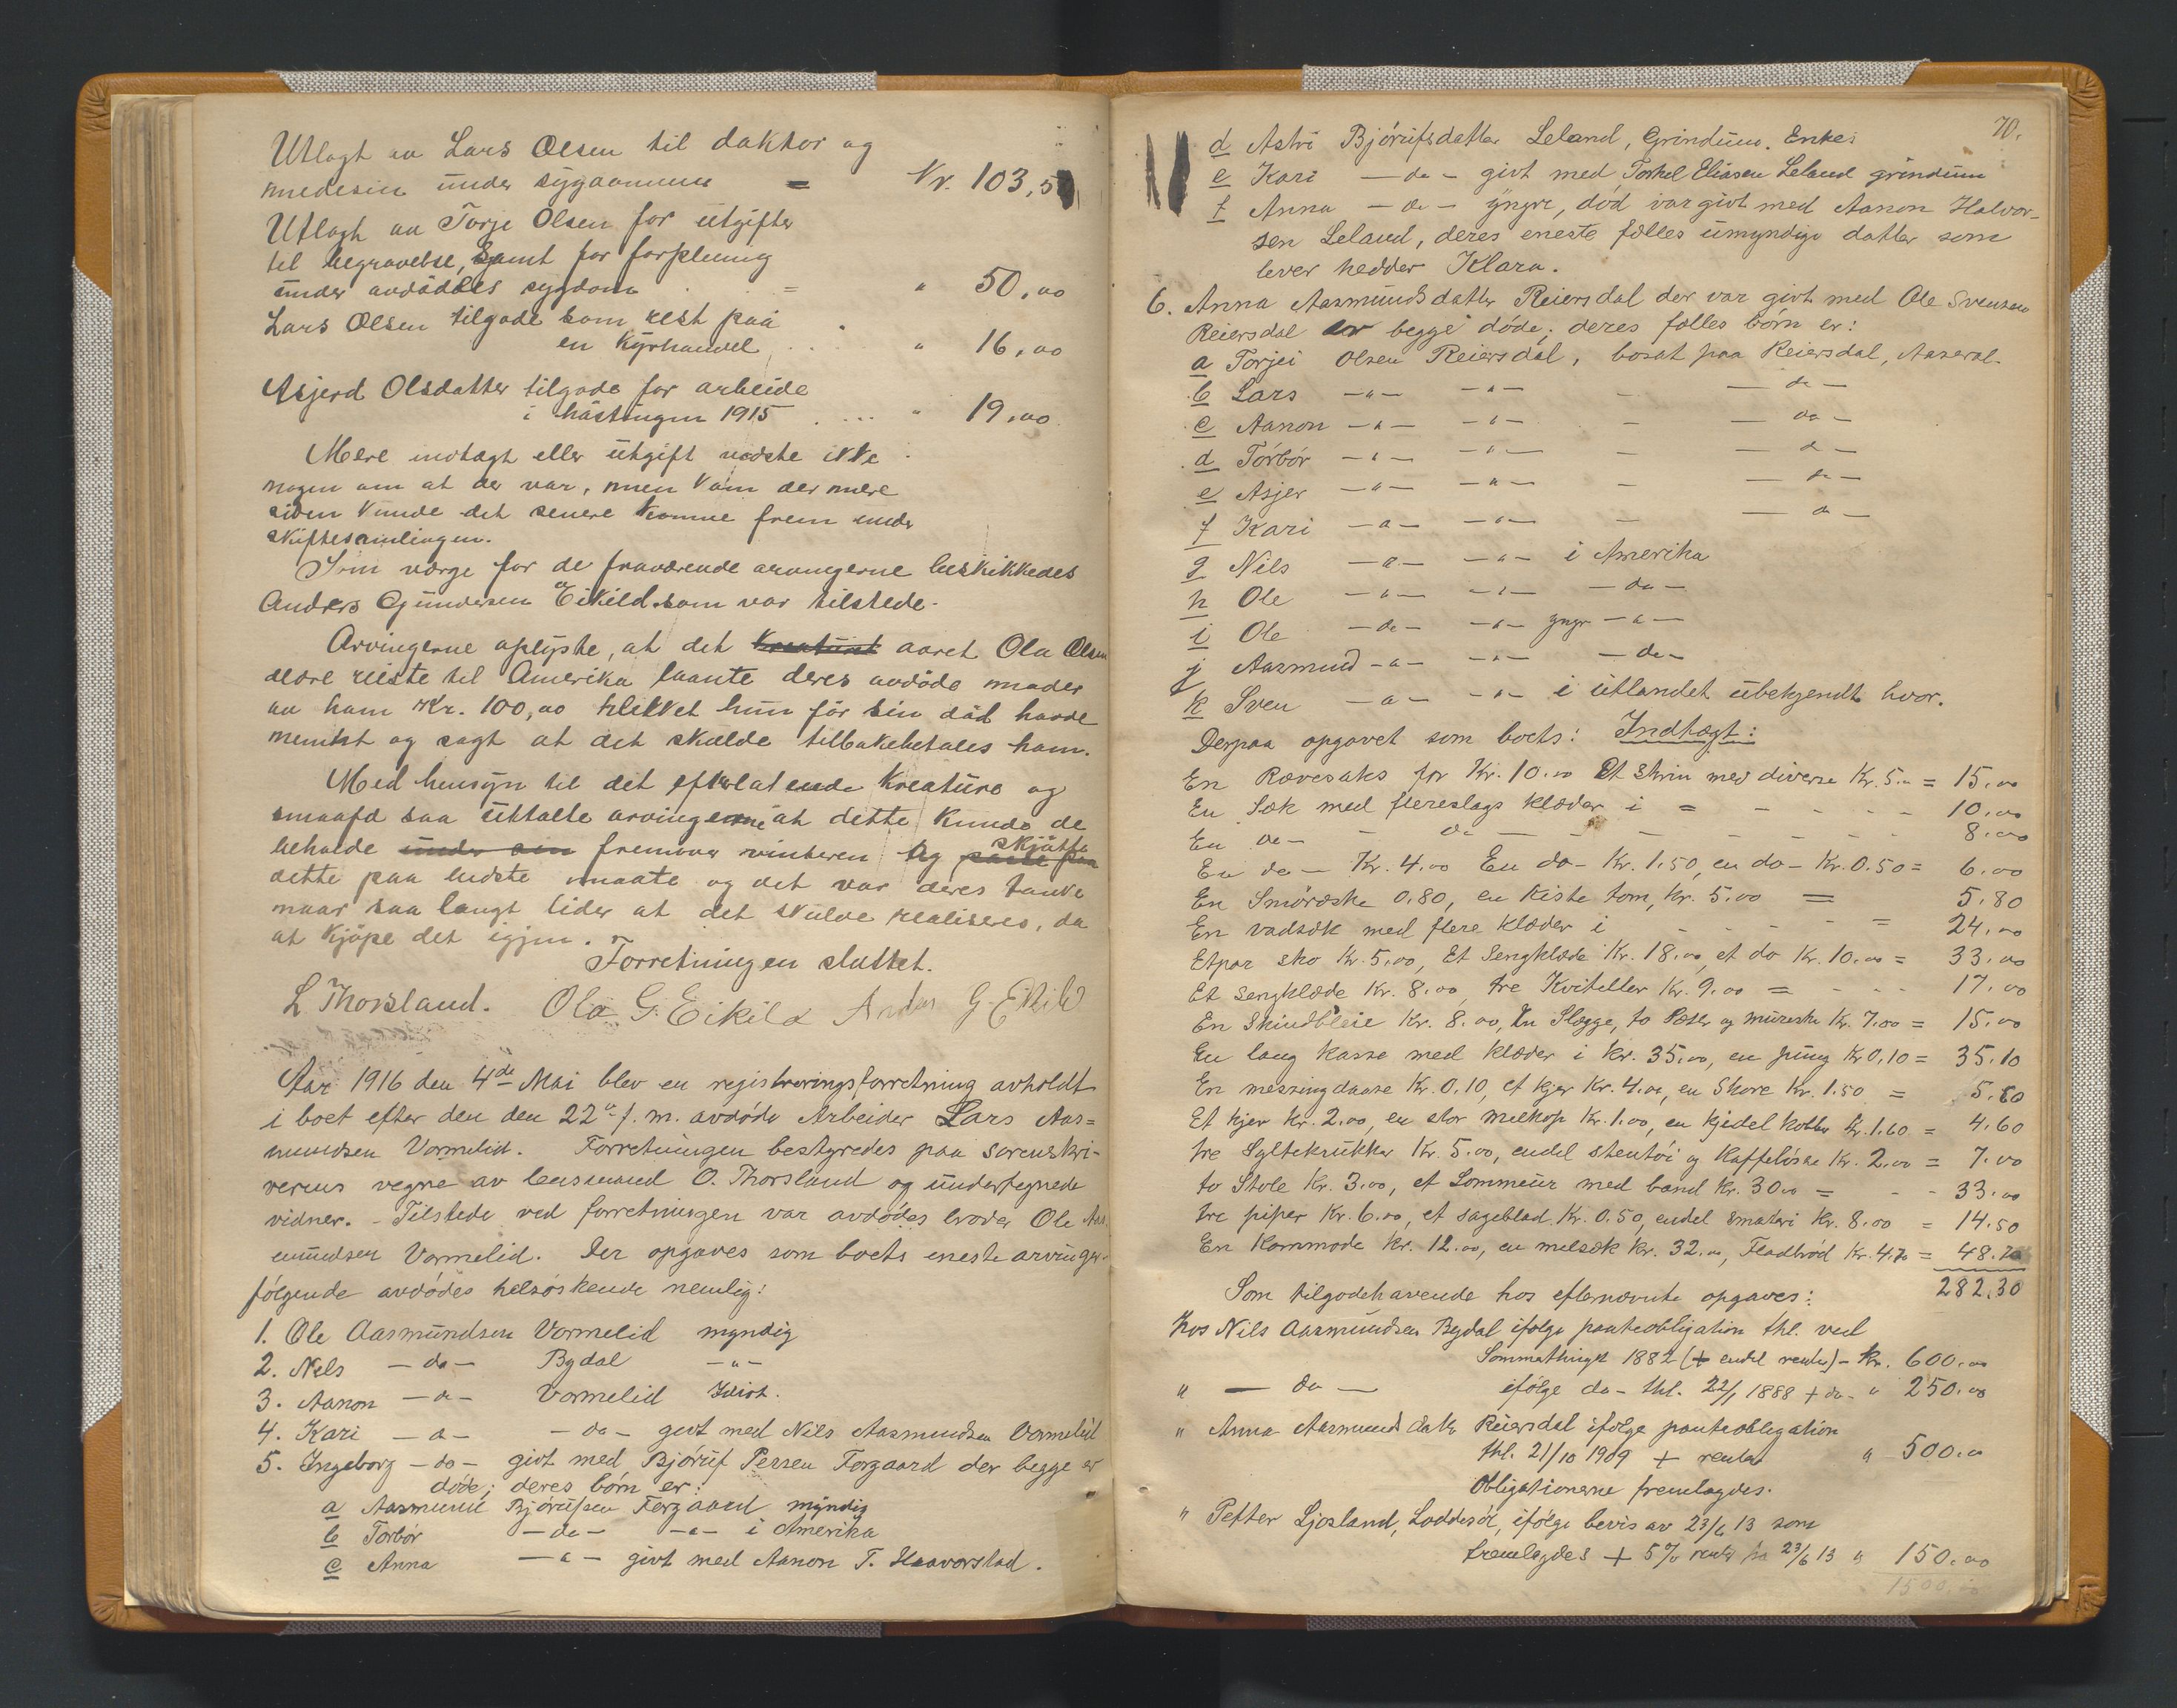 Utlagt av Lars Olsen til doktor og
medesin under sygdommen = Kr. 103,5
Utlagt av Torje Olsen for utgifter
til begravelse, samt for forpleining
under avdødes sygdom = " 50,00
Lars Olsen tilgode som rest paa
en kyrhandel " 16,00
Asjerd Olsdatter tilgode for arbeide
i høstingen 1915 " 19,00
Mere indtægt eller utgift vidste ikke
nogen om at der var, men kom der mere
siden kunde det senere komme frem under
skiftesamlingen.
Som værge for de fraværende arvingerne beskikkedes
Anders Gundersen Eikild som var tilstede.
Arvingerne oplyste, at det kreaturet aaret Ola Olsen
ældre reiste til Amerika laante deres avdøde moder
av ham Kr. 100,00 hvilket hun før sin død havde
nemnt og sagt at det skulde tilbakebetales ham.
Med hensyn til det efterlatende kreature og
smaafd saa uttalte arvingerne at dette kunde de
beholde under sin fremover vinteren og skjøtte
dette paa bedste maate og det var deres tanke
naar saa langt lider at det skulde realiseres, da
at kjøpe det igjen.
Forretningen sluttet.
L Thorsland. Ola G. Eikild Anders G. Eikild
Aar 1916 den 4de Mai blev en registreringsforretning avholdt
i boet efter den den 22de f. m. avdøde Arbeider Lars Aas=
mundsen Vormelid. Forretningen bestyredes paa sorenskri-
verens vegne av lensmand O. Thorsland og undertegnede
vidner. - Tilstede ved forretningen var avdødes broder Ole Aas
mundsen Vormelid. Der opgaves som boets eneste arvinger
følgende avdødes helsøskende nemlig:
1. Ole Aasmundsen Vormelid myndig
2. Nels - do - Bydal - " -
3. Aanon - do - Vormelid Idiot.
4. Kari - " - - do - givt med Nils Aasmundsen Vormelid
5. Ingeborg - do - givt med Bjøruf Persen Forgaard der begge er
døde; deres børn er:
a Aasmund Bjørufsen Forgaard myndig
b Torbør - do - - " - i Amerika
c Anna - " - givt med Aanon T. Haavorstad.
70.
d Astri Bjørufsdatter Leland, Grindum. Enke
e Kari - do - givt med Torkel Eliasen Leland grindum
f Anna - do - yngre, død var givt med Aanon Halvor-
sen Leland, deres eneste fælles umyndige datter som
lever hedder Klara.
6. Anna Aasmundsdatter Reiersdal der var givt med Ole Svensen
Reiersdal er begge døde; deres fælles børn er:
a Torjei Olsen Reiersdal, bosat paa Reiersdal, Aaseral.
b Lars - " - - " - - - do -
c Aanon - " - - " - - - do -
d Torbør - " - - " - - - do -
e Asjer - " - - " - - - do -
f Kari - " - - " - - - do -
g Nils - " - - " - i Amerika
h Ole - " - - " - - do -
i Ole - do - - " - yngr - " -
j Aasmund - " - - " - - do -
k Sven - " - - " - i utlandet ubekjendt hvor.
Derpaa opgavet som boets: Indtægt:
En Rævesaks for Kr. 10.00 Et skrin med diverse Kr. 5.00 = 15.00
En Sæk med flereslags klæder i = - - - - 10.00
En do - - do - - - - - - 8.00
En do - Kr. 4.00 En do - Kr. 1.50, en do - Kr. 0.50 = 6.00
En Smørøske 0.80, en kiste tom, Kr. 5.00 = 5.80
En vadsæk med flere klæder i - - - - = 24.00
Etpar sko Kr. 5.00, Et Sengklæde Kr. 18.00, et do Kr. 10.00 = 33.00
Et sengklæde Kr. 8.00, tre Kviteller Kr. 9.00 = - - - 17.00
En Skindbleie Kr. 8.00, En Slægge, to Øxer og mureske Kr. 7.00 = 15.00
En lang kasse med klæder i Kr. 35.00, en pung Kr 0.10 = 35.10
En messingdaase Kr. 0.10, et kjer Kr. 4.00, en Skore Kr. 1.50 = 5.60
Et kjer Kr. 2.00, en stor melkop Kr. 1.00, en kjedel kobber Kr. 1.60 = 4.60
tre Syltekrukker Kr. 5.00, endel stentøi og Kaffeløsse Kr. 2.00 = 7.00
to Stole Kr. 3.00, et Lommeur med baand Kr. 30.00 = - - 33.00
tre piper Kr. 6.00, et sageblad Kr. 0.50, endel smateri Kr. 8.00 = 14.50
En Kommode Kr. 12.00, en melsæk Kr. 32.00, Fladbrød Kr. 4.70 = 48.70
282.30
Som tilgodehavende hos efternævnte opgaves:
Hos Nils Aasmundsen Bydal ifølge panteobligation thl. ved
Sommerthinget 1882 (+ endel renter) - Kr. 600.00
" - do - ifølge do - thl. 22/1 1888 + do - " 250.00
" Anna Aasmundsdatter Reiersdal ifølge panteobligation
thl. 21/10 1909 + renter " 500.00
Obligationerne fremlagdes.
" Petter Ljosland, Loddesøl, ifølge bevis av 23/6 13 som
fremlagdes + 5% renter fra 23/6 13 " 150.00
1500.00